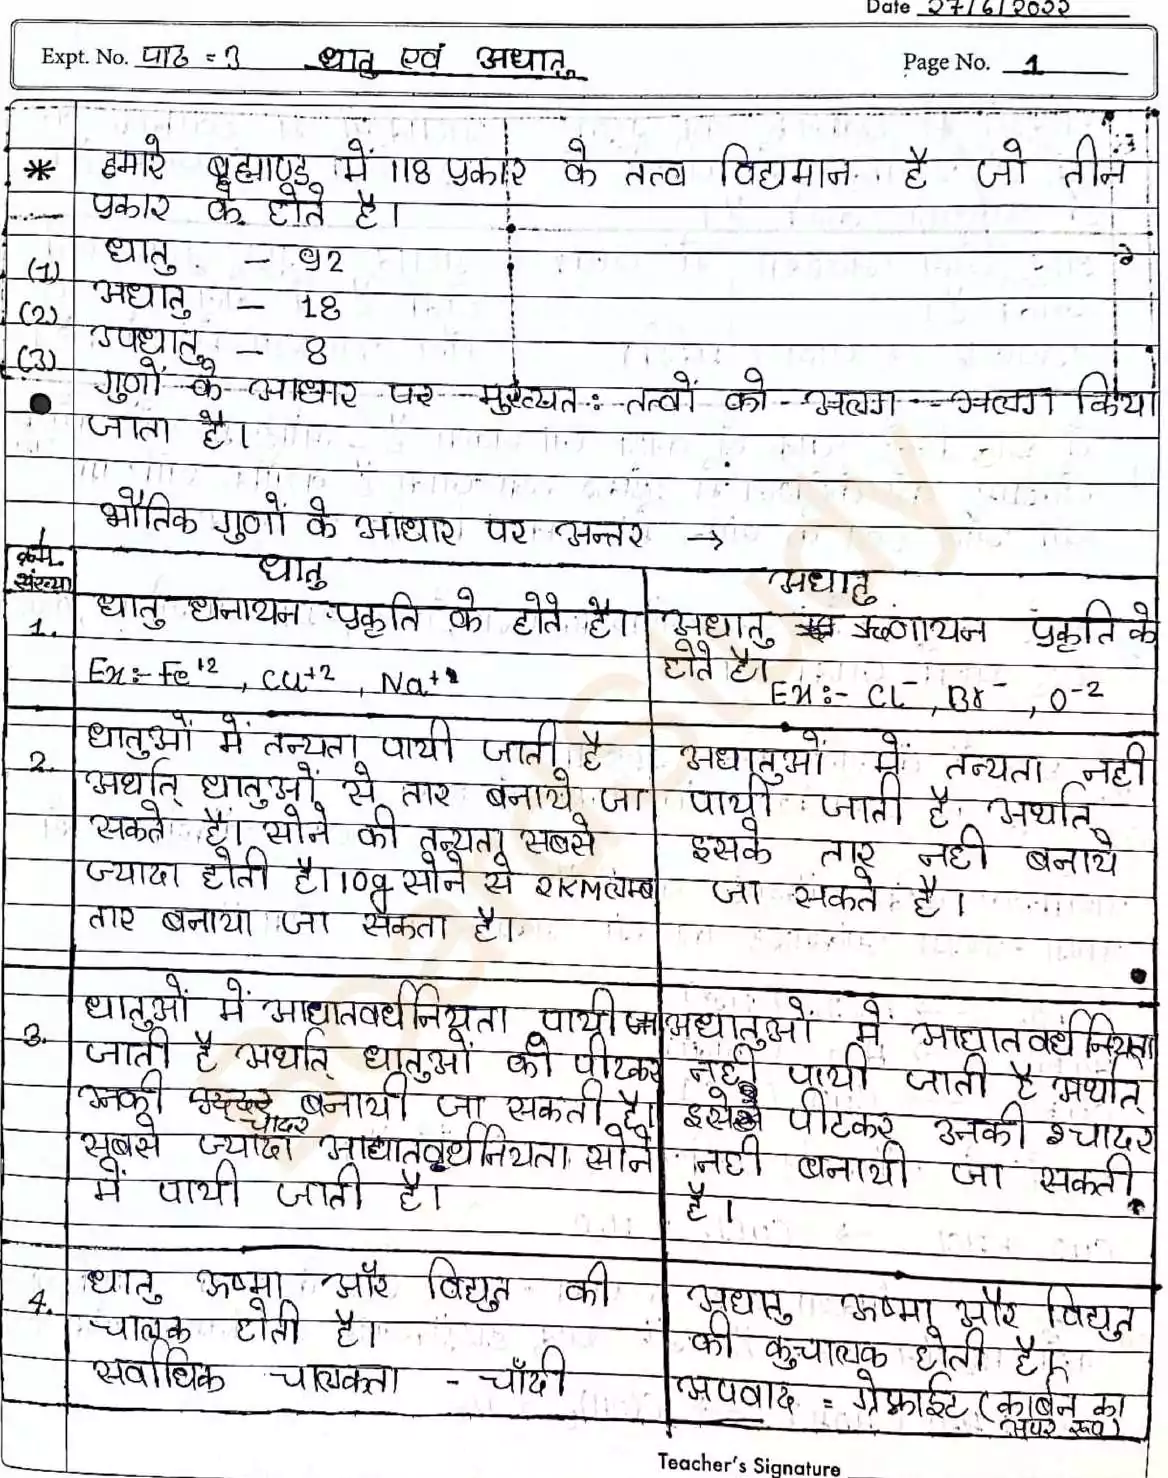 Date 27/6/2022
Expt. No. पाठ = 3 धातु एवं अधातु Page No. 1
* हमारे ब्रह्माण्ड में 118 प्रकार के तत्व विद्यमान है जो तीन
प्रकार के होते है।
(1) धातु - 92
(2) अधातु - 18
(3) उपधातु - 8
गुणों के आधार पर मुख्यतः तत्वों को अलग-अलग किया
जाता है।
भौतिक गुणों के आधार पर अन्तर →
क्रम संख्या
धातु
अधातु
1. धातु धनायन प्रकृति के होते है।
Ex:- Fe+2, Cu+2, Na+1
अधातु ऋणायन प्रकृति के
होते है।
Ex:- Cl-, Br-, O-2
2. धातुओं में तन्यता पायी जाती है
अर्थात् धातुओं से तार बनाये जा
सकते है। सोने की तन्यता सबसे
ज्यादा होती है। 10g सोने से 2KM लम्ब
तार बनाया जा सकता है।
अधातुओं में तन्यता नही
पायी जाती है अर्थात्
इसके तार नही बनाये
जा सकते है।
3. धातुओं में आघातवर्धनियता पायी
जाती है अर्थात् धातुओं को पीटकर
उनकी चादर बनायी जा सकती है।
सबसे ज्यादा आघातवर्धनियता सोने
में पायी जाती है।
अधातुओं में आघातवर्धनियता
नही पायी जाती है अर्थात्
इसे पीटकर उनकी चादर
नही बनायी जा सकती
है।
4. धातु ऊष्मा और विद्युत की
चालक होती है।
सर्वाधिक चालकता - चाँदी
अधातु ऊष्मा और विद्युत
की कुचालक होती है।
अपवाद = ग्रेफाईट (कार्बन का
अपर रूप)
Teacher's Signature